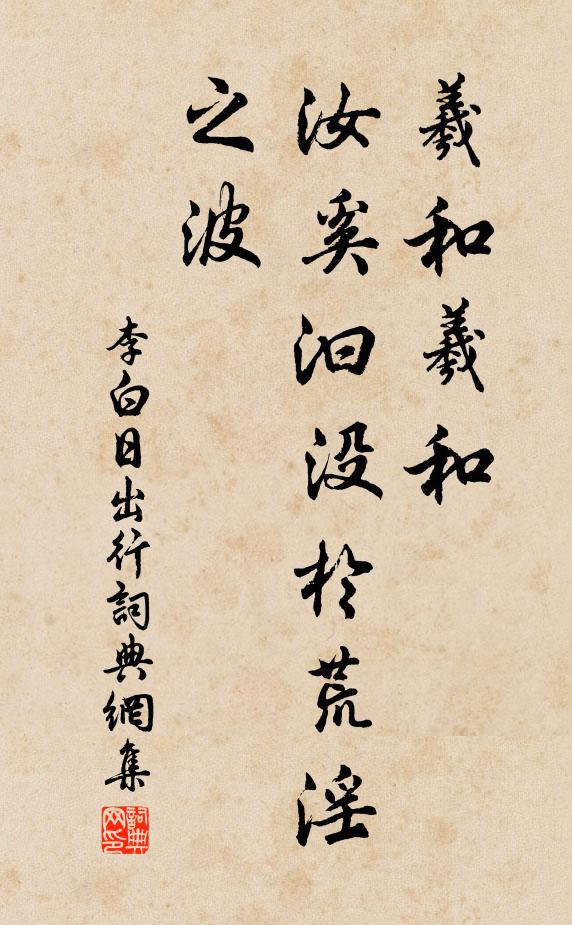 羲和羲和
汝奚汩没於荒淫
之波
李白日出行詞典網集
詞典
网印